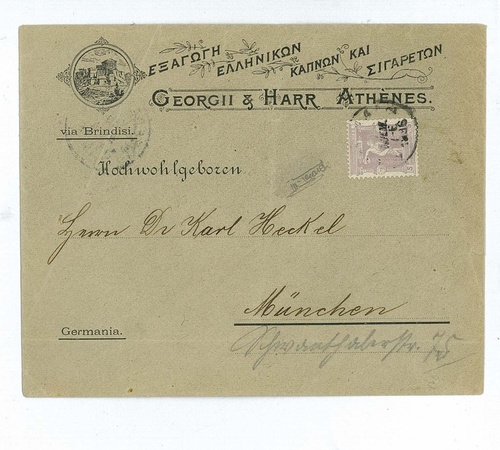 ΕΞΑΓΩΓΗ ΕΛΛΗΝΙΚΩΝ ΚΑΠΝΩΝ ΚΑΙ ΣΙΓΑΡΕΤΩΝ
GEORGII & HARR ATHÈNES.
via Brindisi.
Hochwohlgeboren
Herrn Dr Karl Heckel
München
Germania.
Schwanthalerstr. 75